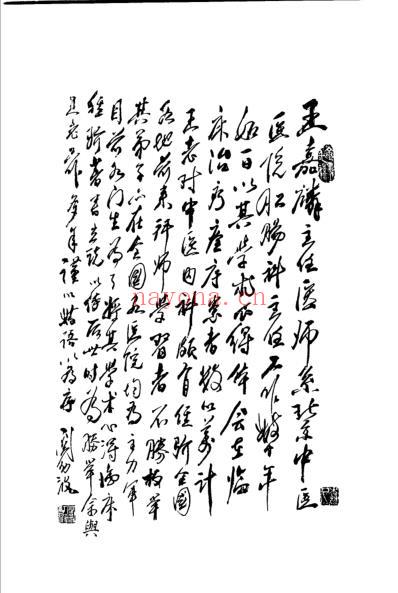 王嘉麟主任医师系北京中医
医院肛肠科主任工作数十年
如一日以其学术所得体会在临
床治疗痊疗患者数以万计
王老对中医内科颇有经验全国
各地前来拜师学习者不胜枚举
其弟子以在全国各医院均为主力军
目前各门生为了将其学术心得临床
经验著书立说以传后世时为胜举余与
王老 多年谨以 语以为序 关幼波
nayona.cn